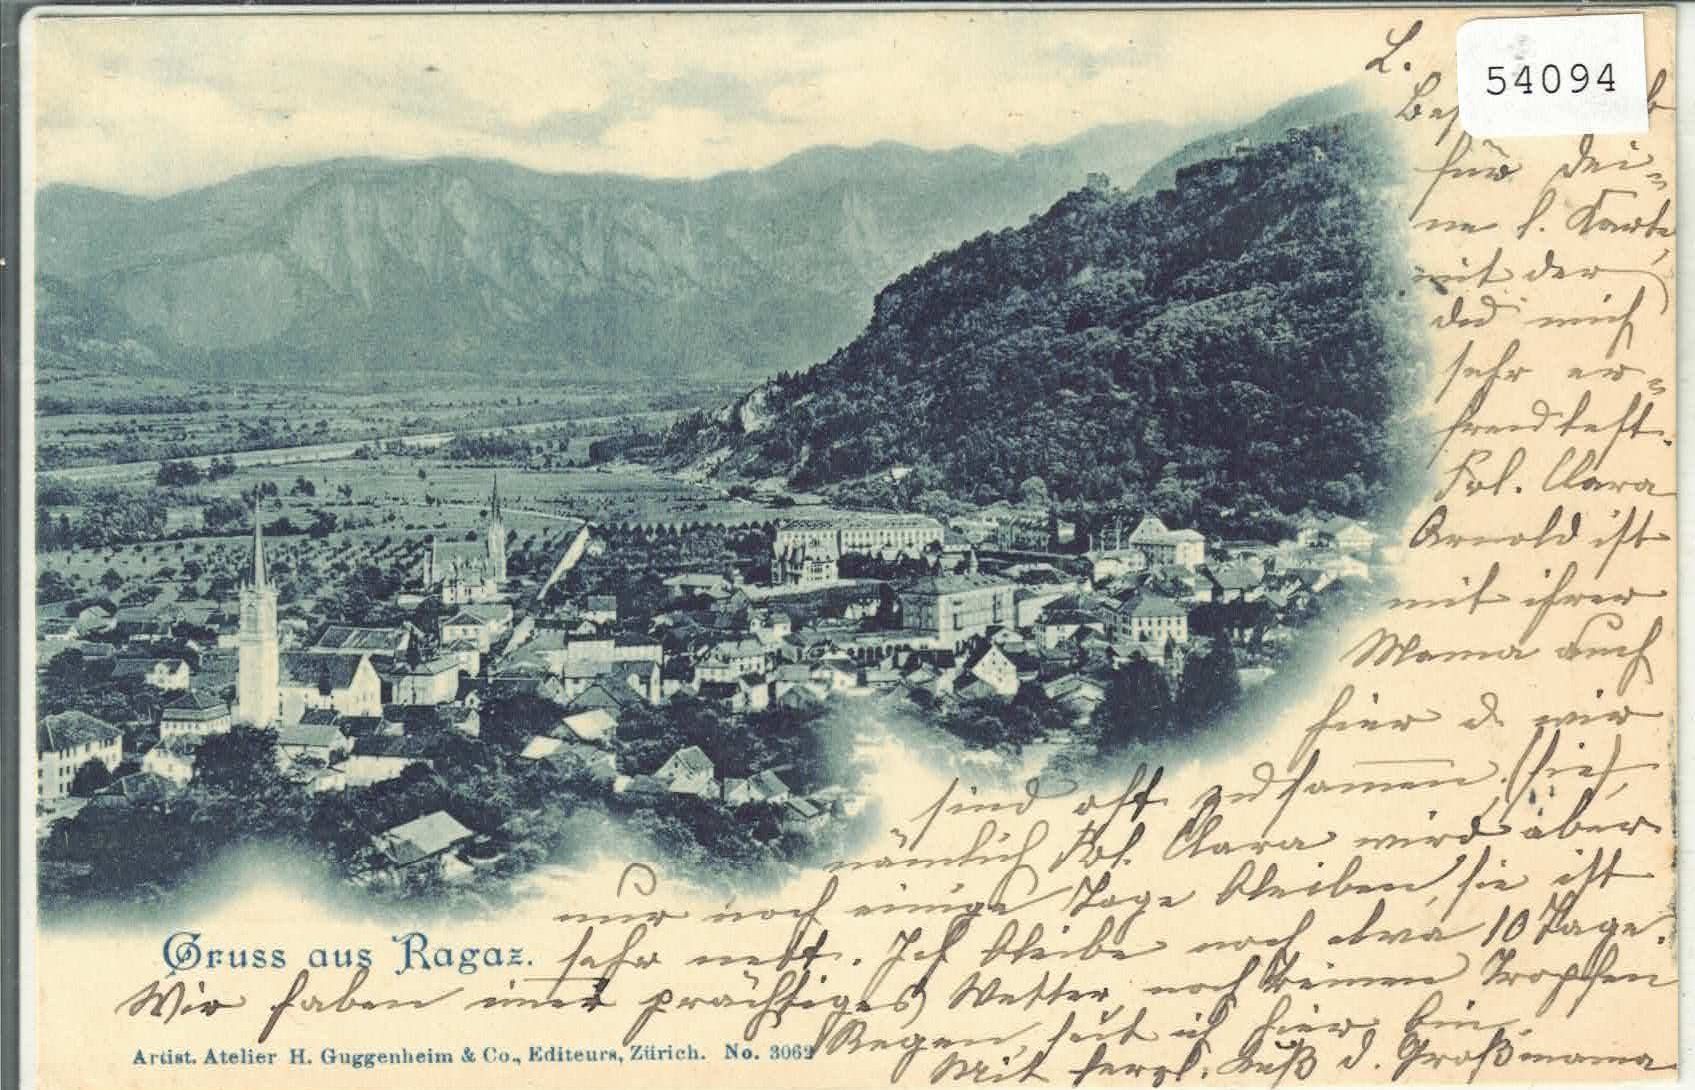 54094
L.
für dei=
ne l. Karte,
mit der
du mich
sehr er=
freut hast.
Frl. Clara
Arnold ist
mit ihrer
Mama auch
hier u. wir
sind oft zusammen, (hier),
nämlich Frl. Clara wird aber
nur noch einige Tage bleiben, sie ist
sehr nett. Ich bleibe noch etwa 10 Tage.
Wir haben immer prächtiges Wetter, noch keinen Tropfen
Regen, seit ich hier bin.
Mit herzl. Kuß d. Großmama
Gruss aus Ragaz.
Artist. Atelier H. Guggenheim & Co., Editeurs, Zürich. No. 3062